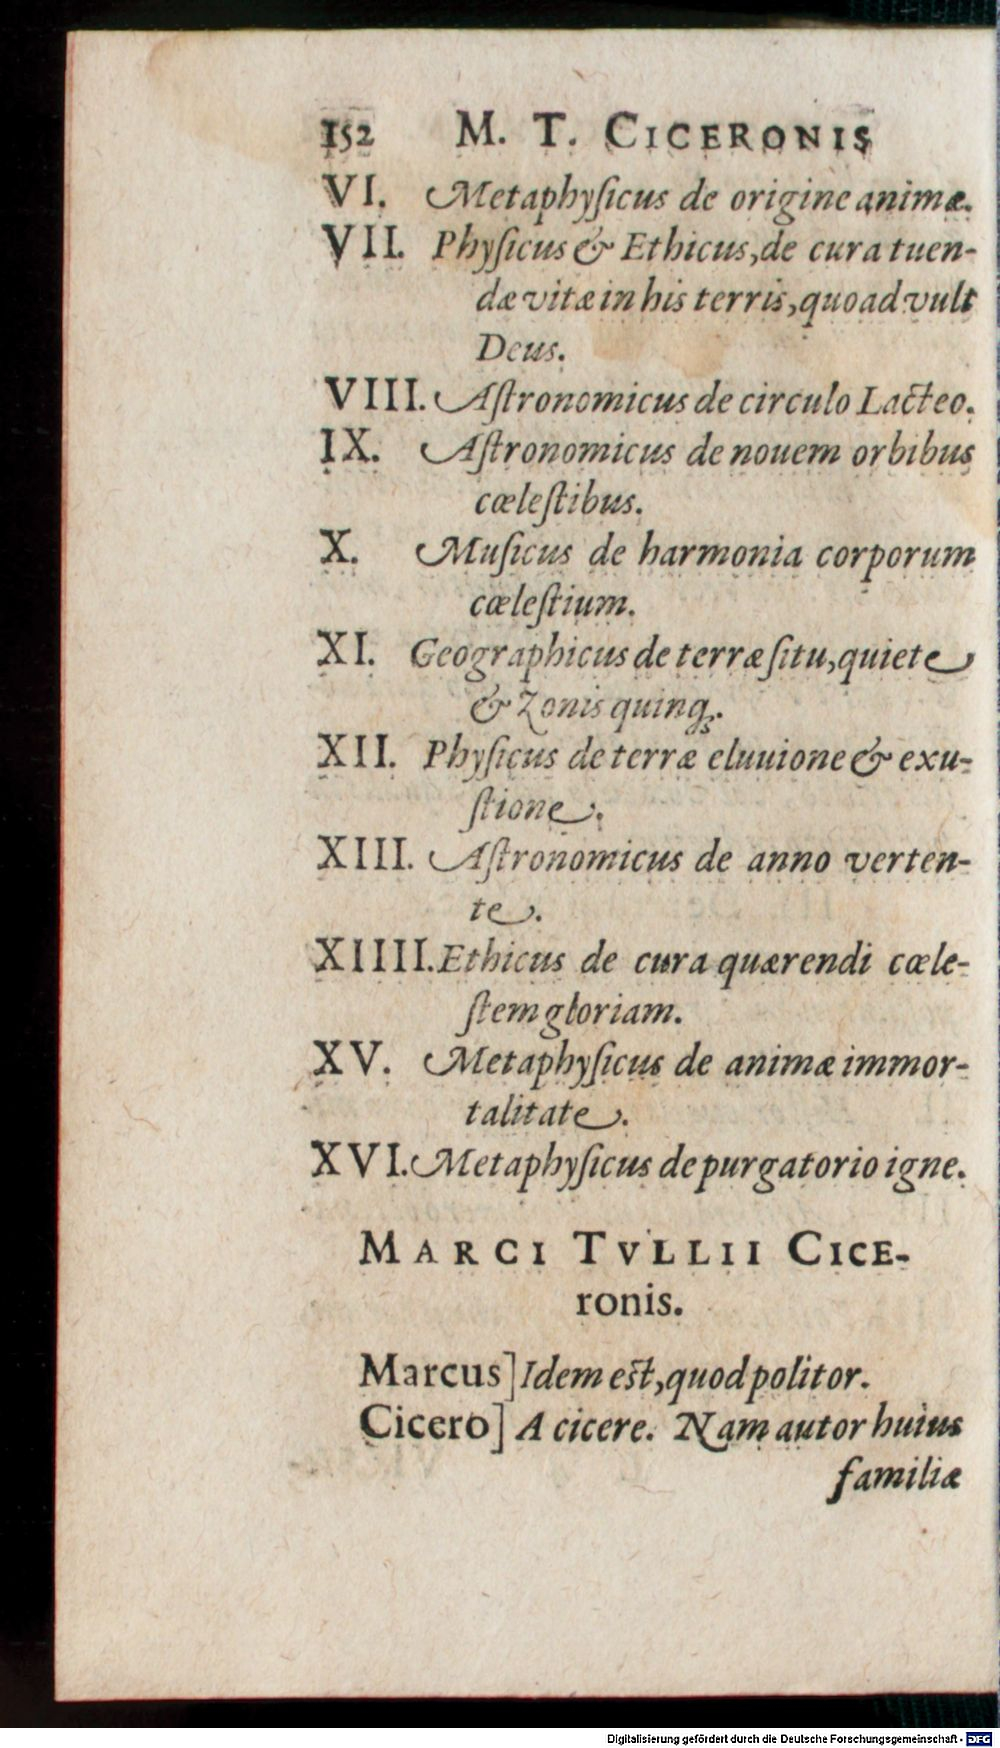 152 M. T. CICERONIS
VI. Metaphyſicus de origine animæ.
VII. Phyſicus & Ethicus, de cura tuen-
dæ vitæ in his terris, quoad vult
Deus.
VIII. Aſtronomicus de circulo Lacteo.
IX. Aſtronomicus de nouem orbibus
cœleſtibus.
X. Muſicus de harmonia corporum
cœleſtium.
XI. Geographicus de terræ ſitu, quiete
& Zonis quinq;.
XII. Phyſicus de terræ eluuione & exu-
ſtione.
XIII. Aſtronomicus de anno verten-
te.
XIIII. Ethicus de cura quærendi cœle-
ſtem gloriam.
XV. Metaphyſicus de animæ immor-
talitate.
XVI. Metaphyſicus de purgatorio igne.
MARCI TVLLII CICE-
ronis.
Marcus] Idem eſt, quod politor.
Cicero] A cicere. Nam autor huius
familiæ
Digitalisierung gefördert durch die Deutsche Forschungsgemeinschaft - DFG